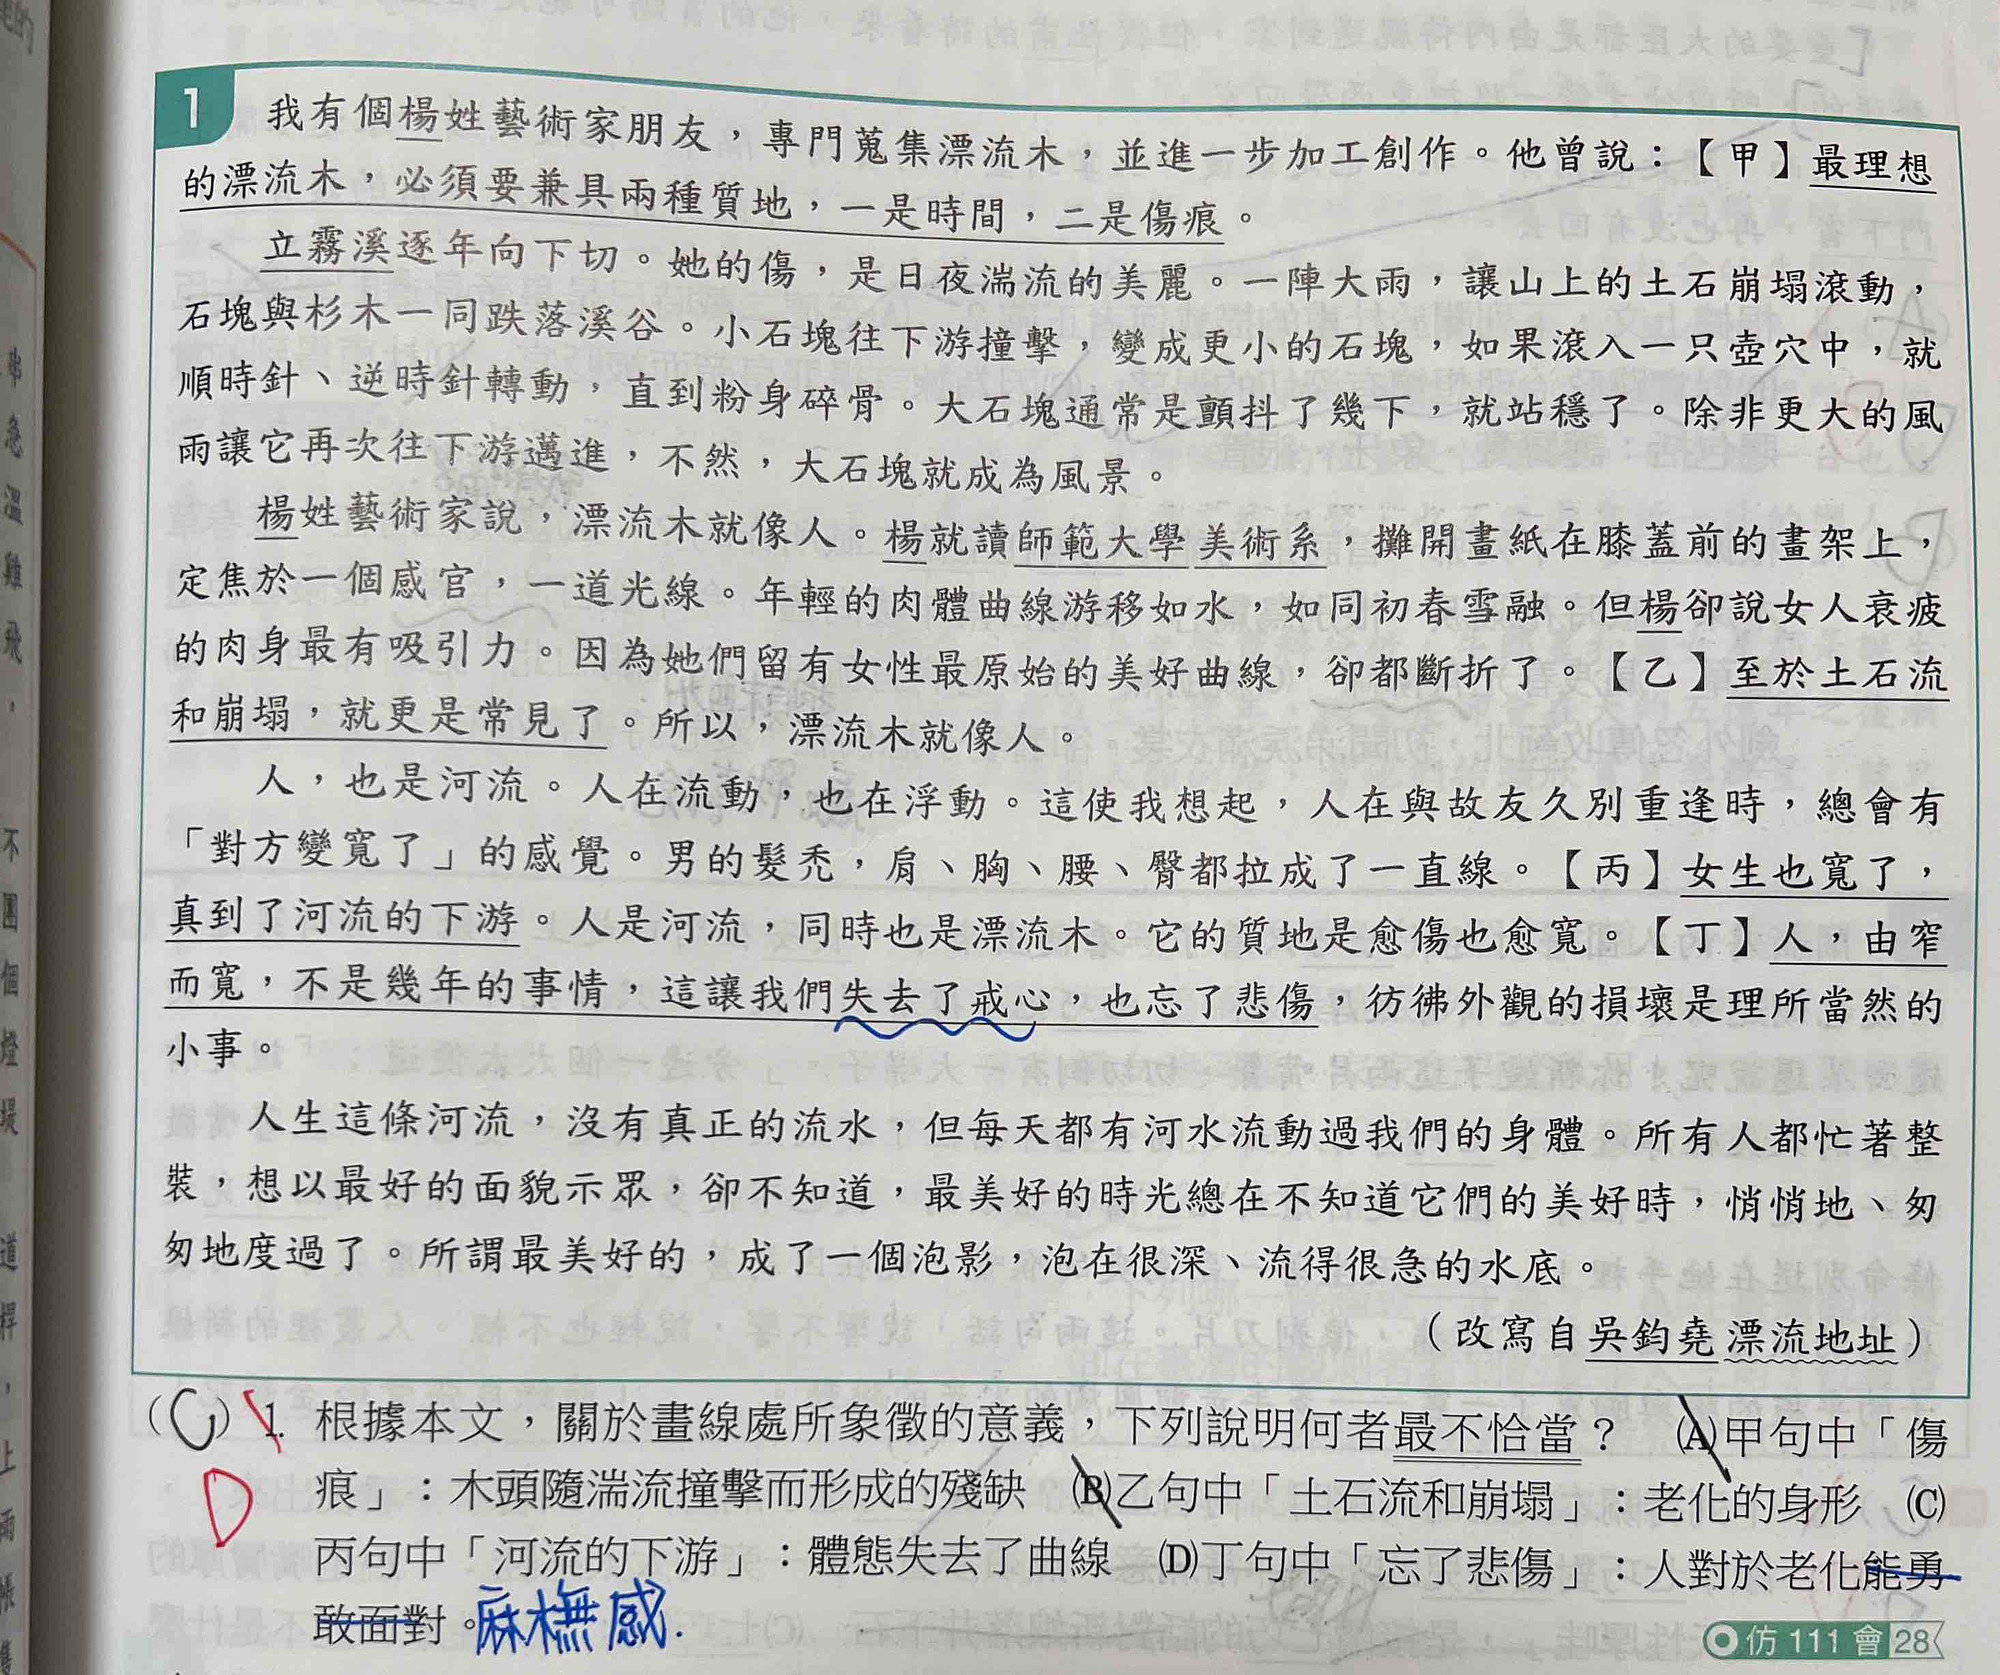 1
我有個楊姓藝術家朋友，專門蒐集漂流木，並進一步加工創作。他曾說：【甲】最理想
的漂流木，必須要兼具兩種質地，一是時間，二是傷痕。
立霧溪逐年向下切。她的傷，是日夜湍流的美麗。一陣大雨，讓山上的土石崩塌滾動，
石塊與杉木一同跌落溪谷。小石塊往下游撞擊，變成更小的石塊，如果滾入一只壺穴中，就
順時針、逆時針轉動，直到粉身碎骨。大石塊通常是顫抖了幾下，就站穩了。除非更大的風
雨讓它再次往下游邁進，不然，大石塊就成為風景。
楊姓藝術家說，漂流木就像人。楊就讀師範大學美術系，攤開畫紙在膝蓋前的畫架上，
定焦於一個感官，一道光線。年輕的肉體曲線游移如水，如同初春雪融。但楊卻說女人衰疲
的肉身最有吸引力。因為她們留有女性最原始的美好曲線，卻都斷折了。【乙】至於土石流
和崩塌，就更是常見了。所以，漂流木就像人。
人，也是河流。人在流動，也在浮動。這使我想起，人在與故友久別重逢時，總會有
「對方變寬了」的感覺。男的髮禿，肩、胸、腰、臀都拉成了一直線。【丙】女生也寬了，
真到了河流的下游。人是河流，同時也是漂流木。它的質地是愈傷也愈寬。【丁】人，由窄
而寬，不是幾年的事情，這讓我們失去了戒心，也忘了悲傷，彷彿外觀的損壞是理所當然的
小事。
人生這條河流，沒有真正的流水，但每天都有河水流動過我們的身體。所有人都忙著整
裝，想以最好的面貌示眾，卻不知道，最美好的時光總在不知道它們的美好時，悄悄地、匆
匆地度過了。所謂最美好的，成了一個泡影，泡在很深、流得很急的水底。
（改寫自吳鈞堯漂流地址）
（C）1. 根據本文，關於畫線處所象徵的意義，下列說明何者最不恰當？　(A)甲句中「傷
D 痕」：木頭隨湍流撞擊而形成的殘缺　(B)乙句中「土石流和崩塌」：老化的身形　(C)
丙句中「河流的下游」：體態失去了曲線　(D)丁句中「忘了悲傷」：人對於老化能勇
敢面對。麻橅感.
仿 111 會 28